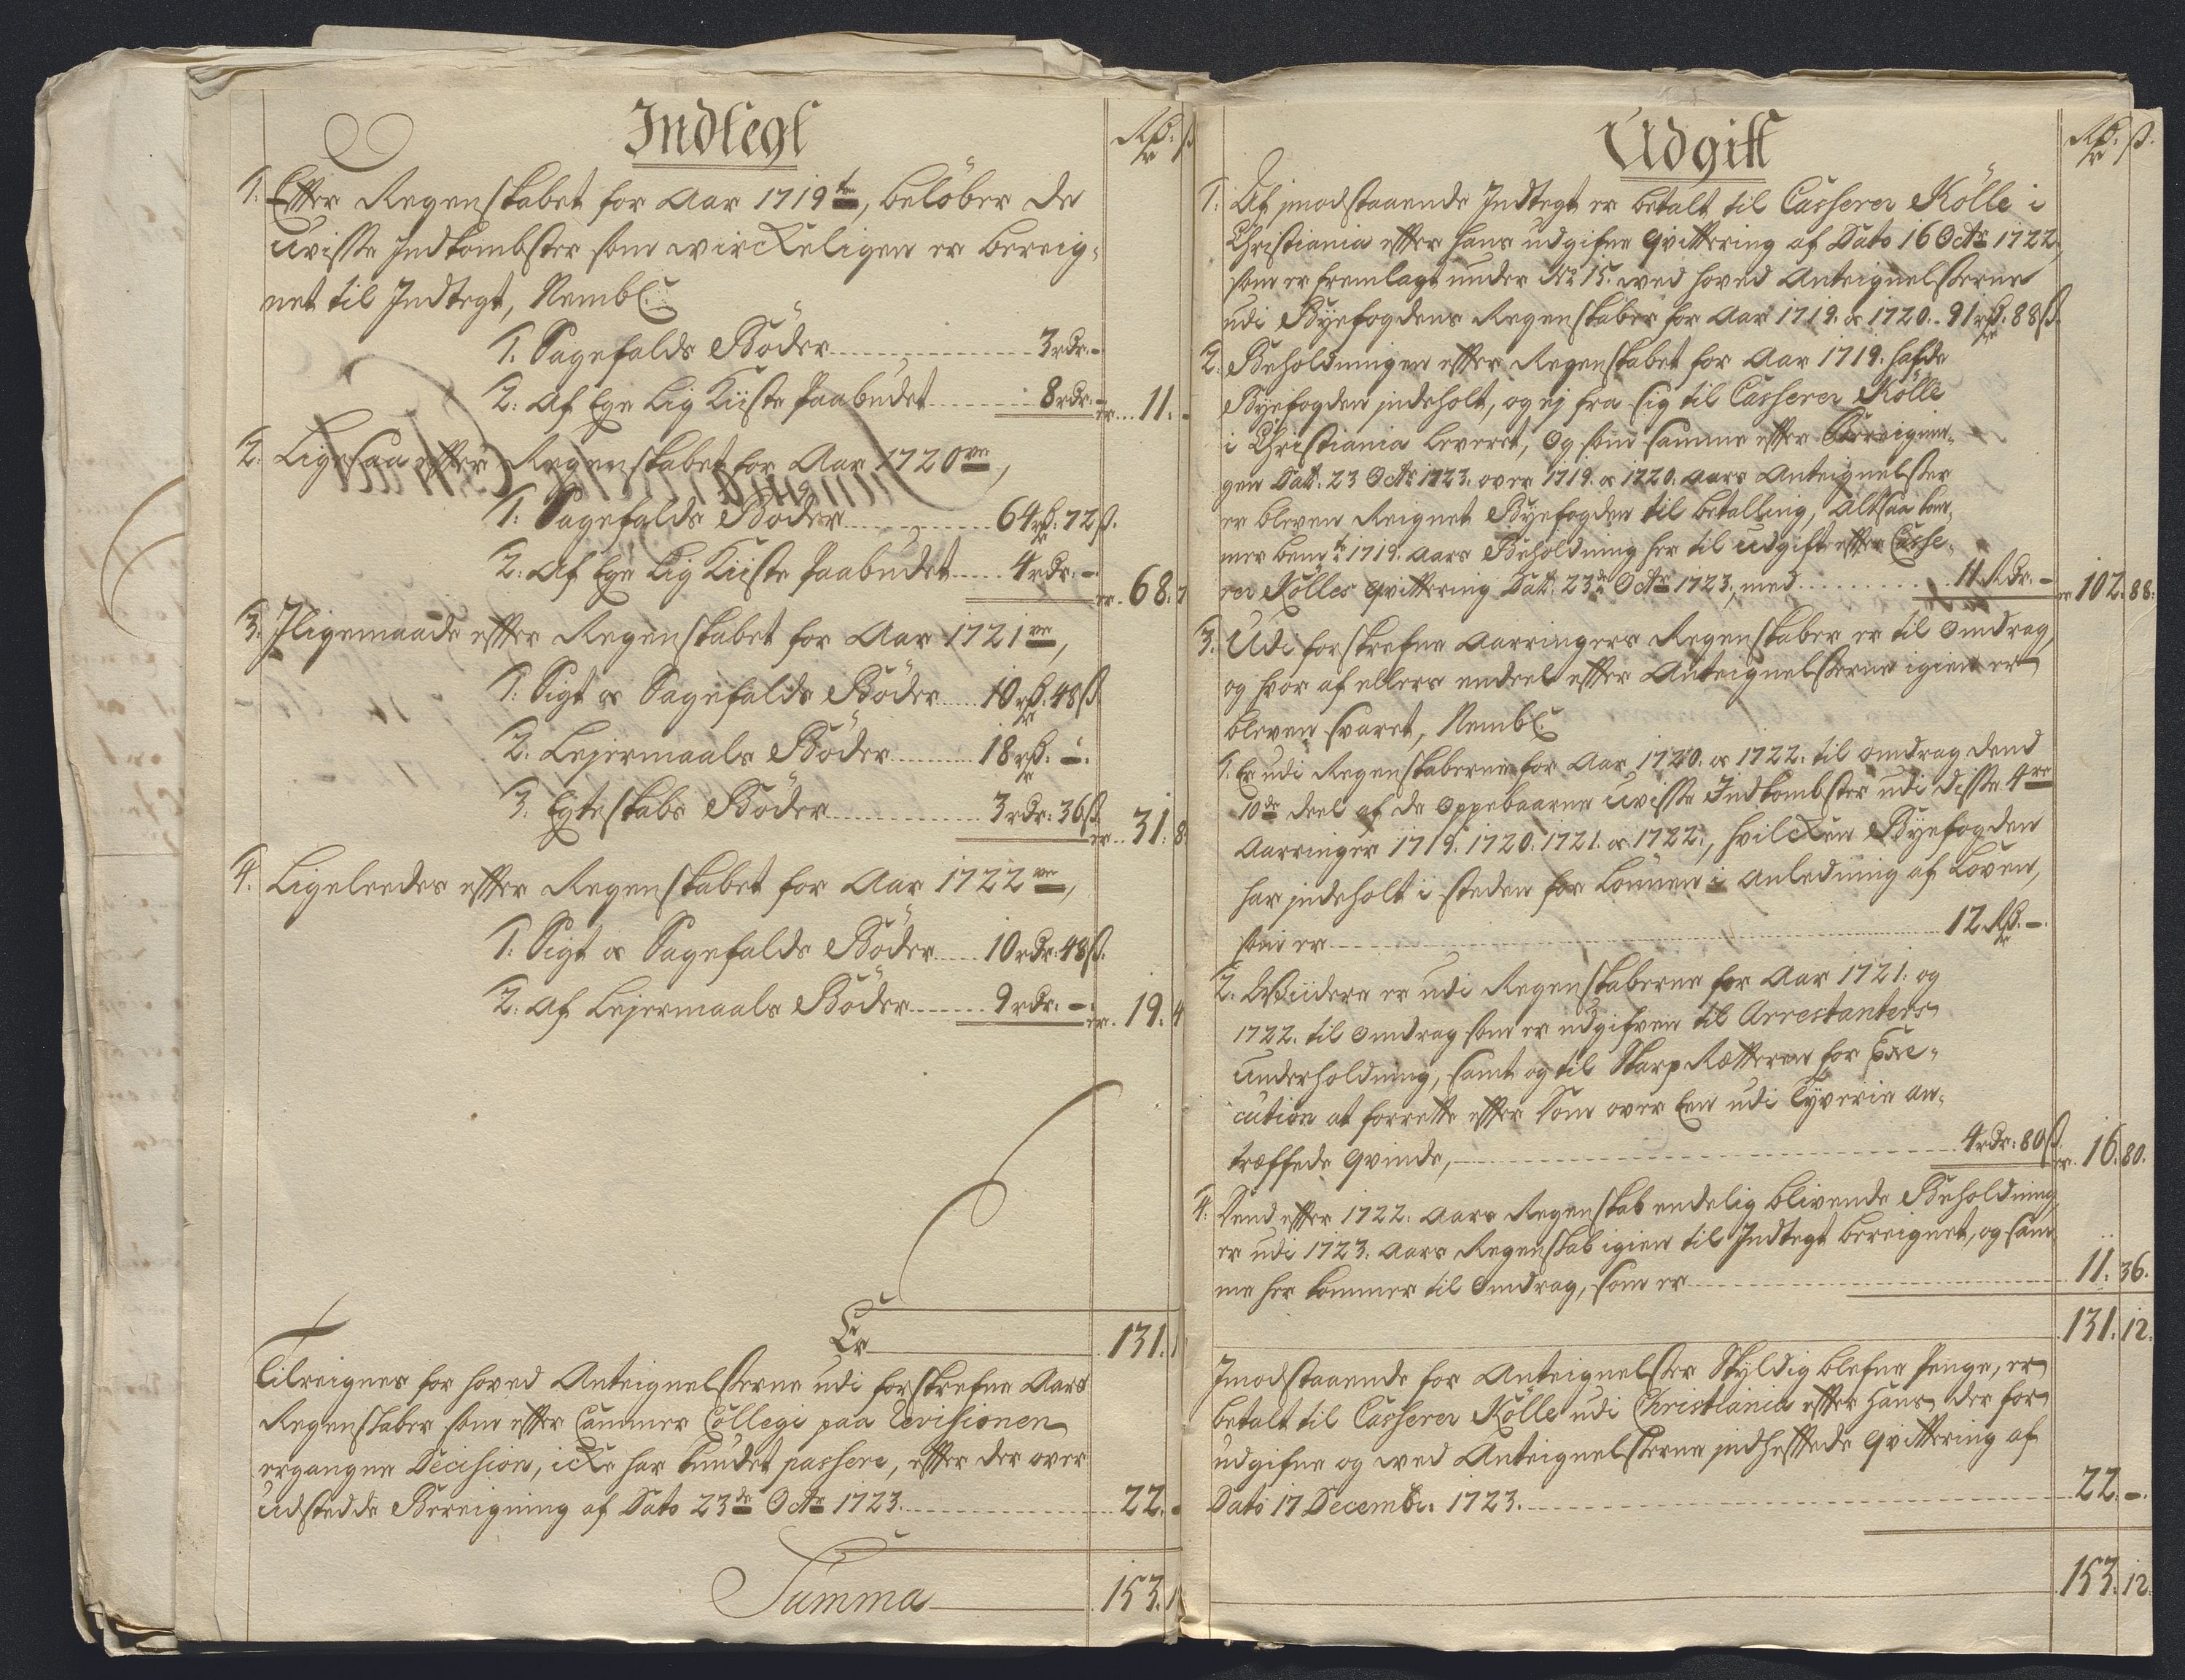 Indtegt
Rdr. ß
1. Efter Regenskabet for Aar 1719ten, beløber de
Uvisse Indkombster som wirckeligen er bereig-
net til Indtegt, Nembl:
1. Sagefalds Bøder 3rdr. -
2. Af Ege Lig Kiiste Paabudet 8rdr. - er 11. -
2. Ligesaa efter Regenskabet for Aar 1720ve,
1. Sagefalds Bøder 64rdr. 72ß.
2. Af Ege Lig Kiiste Paabudet 4rdr. - er 68. 7
3. Iligemaade efter Regenskabet for Aar 1721ve,
1. Sigt og Sagefalds Bøder 10rdr. 48ß.
2. Lejermaals Bøder 18rdr. -
3. Egteskabs Bøder 3rdr. 36ß. er 31. 8
4. Ligeleedes efter Regenskabet for Aar 1722ve,
1. Sigt og Sagefalds Bøder 10rdr. 48ß.
2. Af Lejermaals Bøder 9rdr. - er 19. 4
Er 131. 1
Tilreignes for hoved Anteignelserne udi forskrefne Aars
Regenskaber som efter Cammer Collegi paa Revisionen
ergangne Decision, icke har kundet passere, efter der over
udstedde Bereigning af Dato 23de Octr 1723. 22. -
Summa 153. 1
Udgift
Rdr. ß.
1. Af imodstaaende Indtegt er betalt til Casserer Kølle i
Christiania efter hans udgifne qvittering af Dato 16 Octr 1722,
som er fremlagt under No 15. wed hoved Anteignelserne
udi Byefogdens Regenskaber for Aar 1719. og 1720. 91rdr. 88ß.
2. Beholdningen efter Regenskabet for Aar 1719. hafde
Byefogden indeholt, og ej fra sig til Casserer Kølle
i Christiania leveret, Og som samme efter Bereignin-
gen Dat. 23 Octr 1723. over 1719. og 1720. Aars Anteignelser
er bleven Reignet Byefogden til betalling, Altsaa kom-
mer bemte 1719. Aars Beholdning her til udgift efter Casse-
rer Kølles qvittering Dat. 23de Octr 1723, med 11 Rdr. - er 102. 88.
3. Udi forskrefne Aarringers Regenskaber er til Omdrag,
og hvor af ellers endeel efter Anteignelserne igien er
bleven svaret, Nembl:
1. Er udi Regenskaberne for Aar 1720. og 1722. til omdrag dend
10de deel af de Oppebaarne Uvisse Indkombster udi disse 4re
Aarringer 1719. 1720. 1721. og 1722., hvilcken Byefogden
har indeholt i steden for Lønnen i anledning af Loven,
som er 12 Rdr. -.
2. Wiidere er udi Regenskaberne for Aar 1721. og
1722. til Omdrag som er udgifven til Arrestanters
Underholdning, samt og til SkarpRetteren for Exe-
cution at forrette efter Dom over Een udi Tyverie an-
træffede qvinde, 4rdr. 80ß. er 16. 80.
4. Dend efter 1722. Aars Regenskab endelig blivende Beholdning,
er udi 1723. Aars Regenskab igien til Indtegt bereignet, og sam-
me her kommer til Omdrag, som er 11. 36.
131. 12.
Imodstaaende for Anteignelser Skyldig blefne Penge, er
betalt til Casserer Kølle udi Christiania efter hans der for
udgifne og wed Anteignelserne indheftede qvittering af
Dato 17 Decembr. 1723. 22. -.
153. 12.